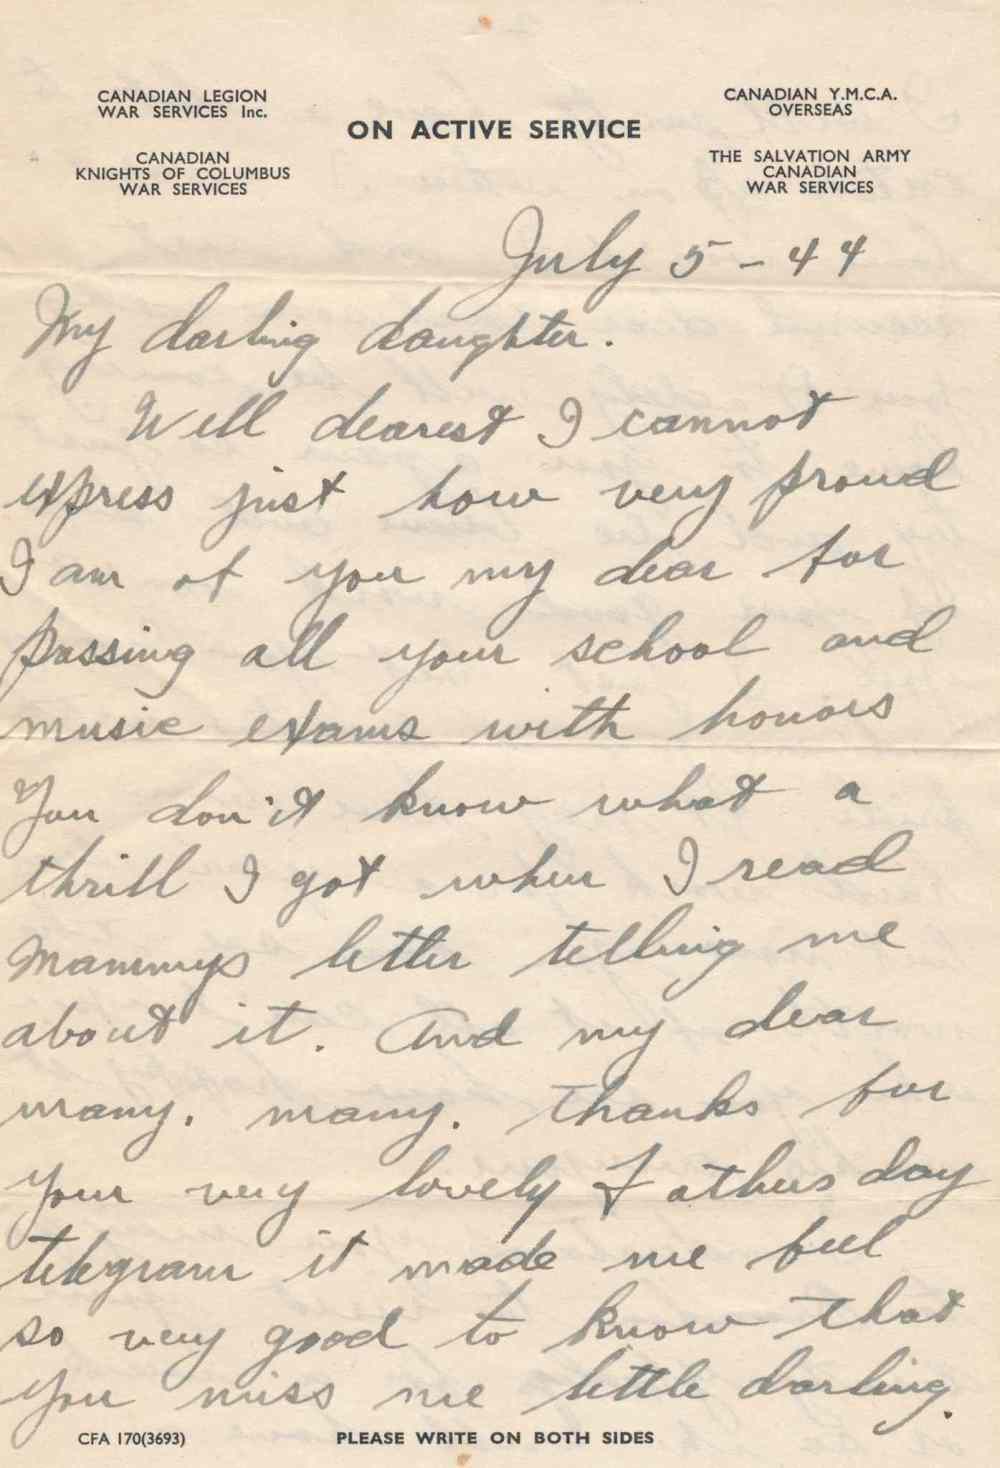 CANADIAN LEGION
WAR SERVICES Inc.
CANADIAN
KNIGHTS OF COLUMBUS
WAR SERVICES
ON ACTIVE SERVICE
CANADIAN Y.M.C.A.
OVERSEAS
THE SALVATION ARMY
CANADIAN
WAR SERVICES
July 5 - 44
My darling daughter.
Well dearest I cannot
express just how very proud
I am of you my dear for
passing all your school and
music exams with honors
You don't know what a
thrill I got when I read
Mammys letter telling me
about it. And my dear
many, many, thanks for
your very lovely Fathers day
telegram it made me feel
so very good to know that
you miss me little darling.
CFA 170(3693)
PLEASE WRITE ON BOTH SIDES